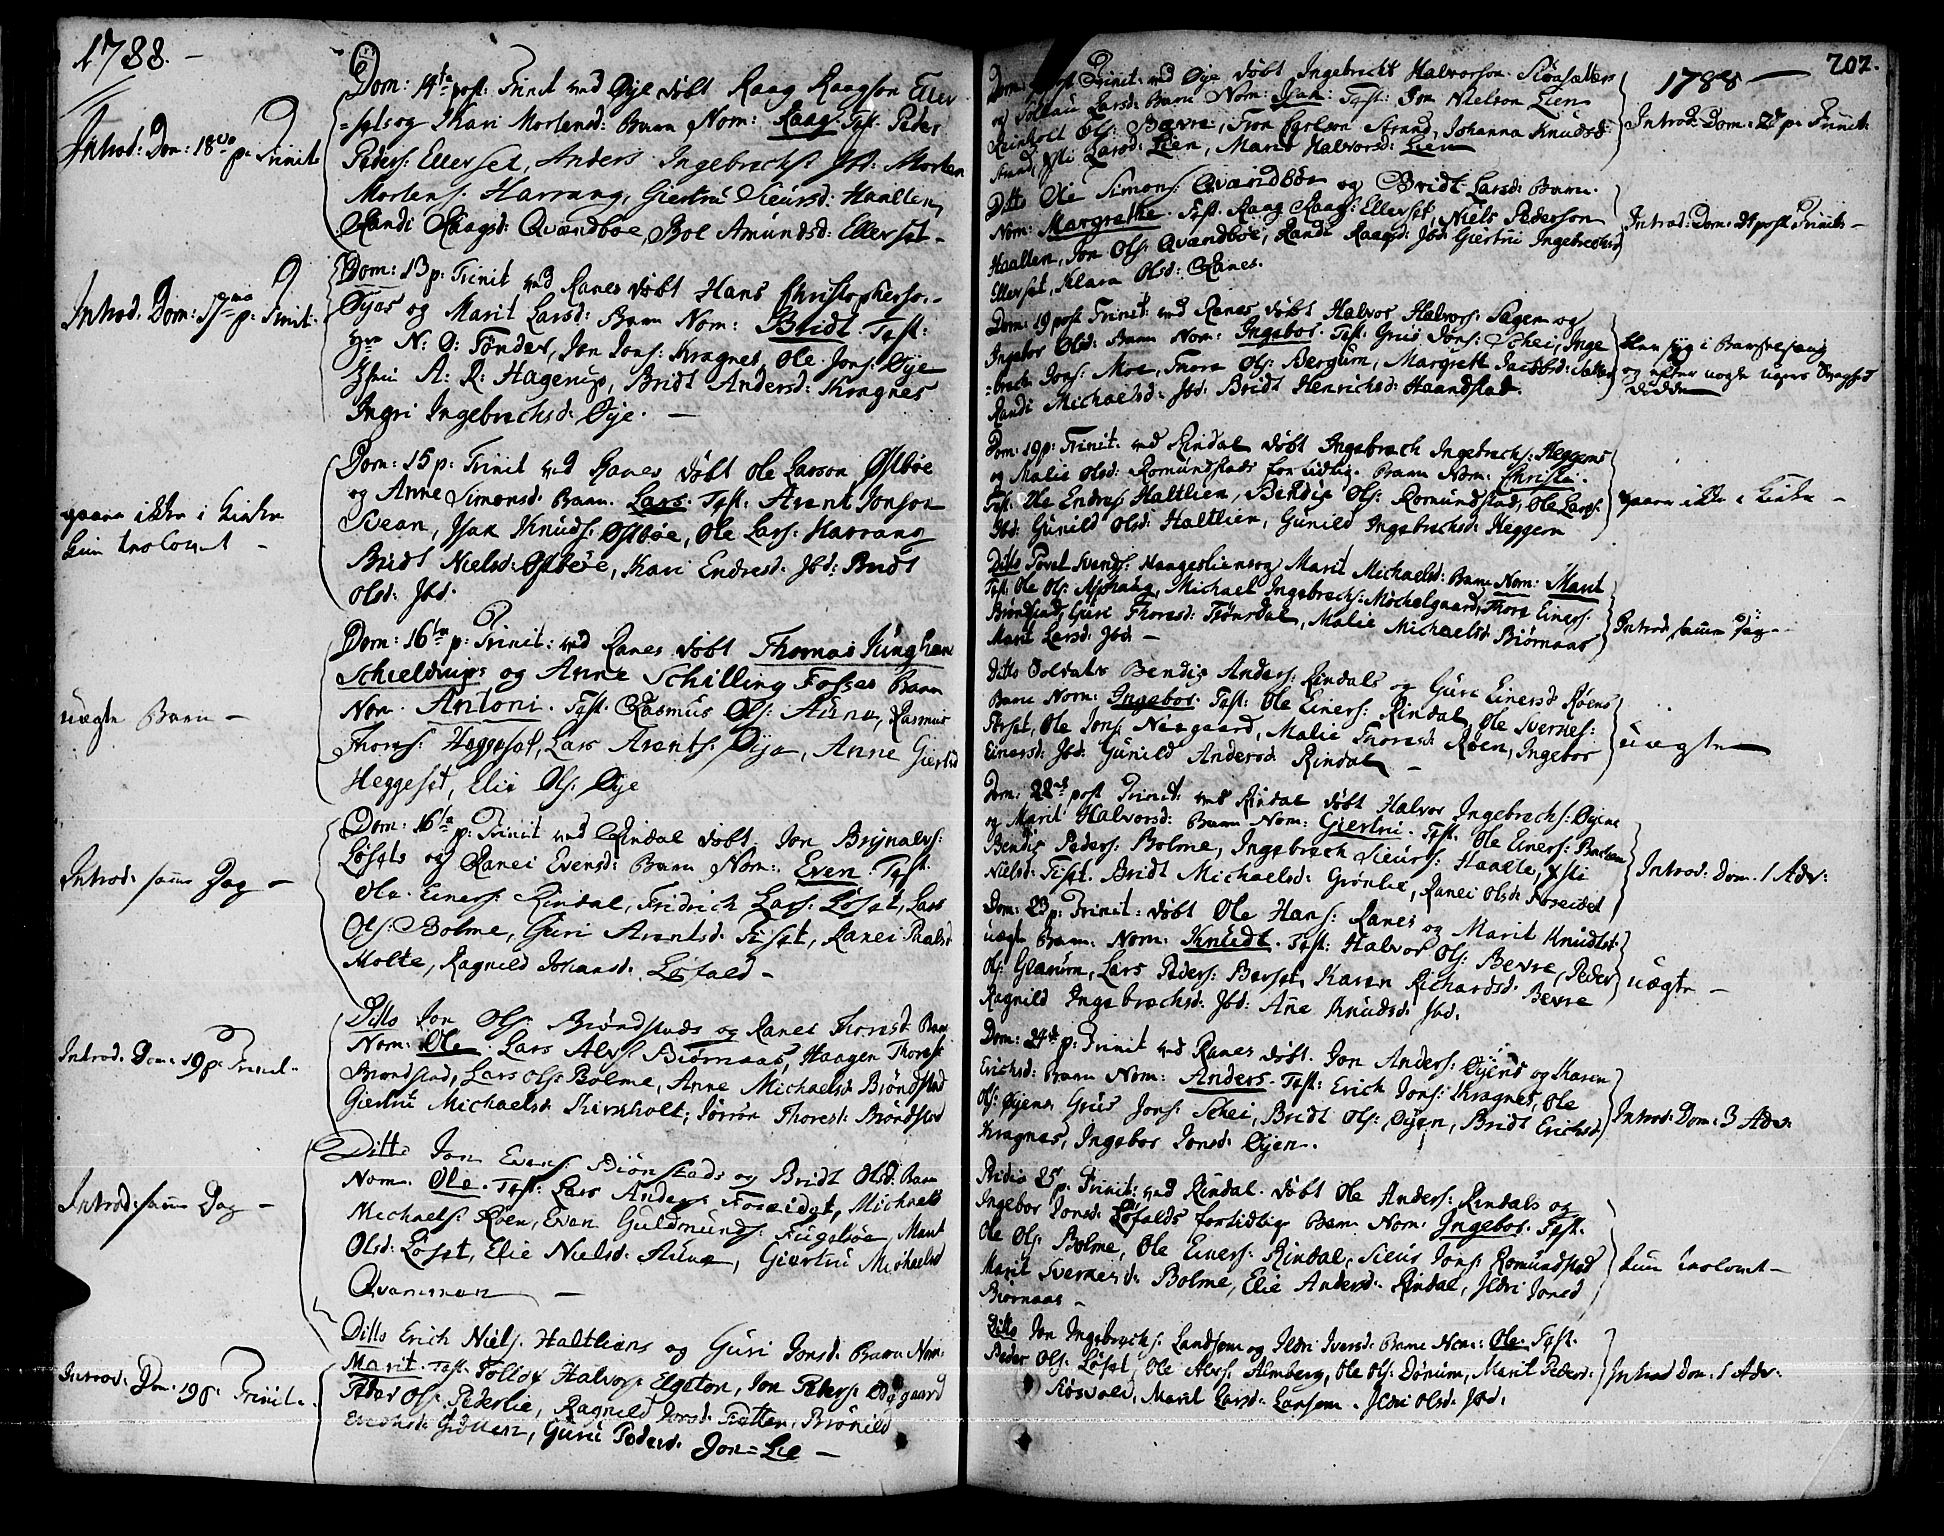 1788. -
Introd: Dom: 18de p: Trinit:
Dom: 14ta post: Trinit ved Øye døbt Raag Raagson Eller
=sets og Kari Mortensd: Barn Nom: Raag. Test: Peder
Peders: Ellerset, Anders Ingebrechts: Ibd: Morten
Mortens: Harrang, Giertru Sieursd: Haallen,
Randi Raagsd: Qvændbøe, Bol Amundsd: Ellerset -
Introd: Dom: 17ma p: Trinit:
Dom: 13 p: Trinit ved Ranes døbt Hans Christopherso..
Øyas og Marit Larsd: Barn Nom: Bridt Test:
Hr N: D: Tønder, Jon Jons: Kragnes, Ole Jons: Øye
A: R: Hagerup, Bridt Andersd: Kragnes
Ingri Ingebrechsd: Øye. -
gaaer ikke i Kirke
kun trolovet -
Dom: 15 p: Trinit ved Ranes døbt Ole Larson Østbøe
og Anne Simonsd: Barn Lars Test: Arent Jonson
Svean, Isak Knuds: Østbøe, Ole Lars: Harrang
Bridt Nielsd: Østbøe, Kari Endresd: Ibd: Bridt
Olsd: Ibd:
uægte Barn -
Dom: 16ta p: Trinit: ved Ranes døbt Thomas Jünghans
Schieldrups og Anne Schilling Fosses Barn
Nom. Antoni. Test. Rasmus Ols: Aune, Rasmus
Thores: Heggeset, Lars Arents: Øye, Anne Giertsd
Heggeset, Elie Ols: Øye
Introd: samme Dag -
Dom: 16ta p: Trinit ved Rindal døbt Jon Brynalvs:
Løsets og Ranei Evensd: Barn Nom: Even. Test:
Ole Einers: Rindal, Fridrich Lars: Løset, Lars
Ols: Bolme, Guri Arentsd: Tiset, Ranei Thorsd:
Molte, Ragnild Johansd: Løfald -
Introd: Dom: 19 p: Trinit -
Ditto Jon Ols: Brøndstads og Ranei Thoresd: Barn
Nom: Ole. Lars Alvs: Biørnaas, Haagen Thores:
Brøndstad, Lars Ols: Bolme, Anne Michaelsd: Brøndstad
Giertru Michaelsd: Kirkholt, Sørrøn Thoresd: Brøndstad
Introd: samme Dag -
Ditto Jon Evens: Biønstads og Bridt Olsd: Barn
Nom. Ole. Test: Lars Anders: Foseidet, Michael
Michaels: Røen, Even Guldmunds: Fugelsøe, Marit
Olsd: Løset, Elie Nielsd: Aune, Giertru Michaelsd
Qvammen -
Introd: Dom: 19 p: Trinit..
Ditto Erich Niels: Haltliens og Guri Jonsd: Barn Nom:
Marit. Test. Tollof Halvors: Elgeton, Jon Peders: Nygaard
Peder Ols: Pederlie, Ragnild Jonsd: Tatten, Brønild
Erichsd: Grøtten, Guri Pedersd: Jon=Lie -
1788 -
202.
Dom: post Trinit: ved Øye døbt Ingebricht Halvorson Siøasætters
og Sollau Larsd: Barn Nom: Isak: Test: Jon Nielson Lien
Reinholt Ols: Bævre, Tron Carlson Strand, Johanna Knudsd:
Strand, Kisti Larsd: Lien, Marit Halvorsd: Lien
Introd: Dom: 22 p: Trinit:
Ditto Ole Simons: Qvændbøe og Bridt Larsd: Barn.
Nom: Margrethe. Test. Raag Raags: Ellerset, Niels Pederson
Haallen, Jon Ols: Qvændbøe, Randi Raagsd: Ibd: Giertru Ingebrechtsd:
Ellerset, Klara Olsd: Ranes.
Introd: Dom: 21 post Trinit: -
Dom: 19 post Trinit: ved Ranes døbt Halvor Halvors: Sagen og
Ingebor Olsd: Barn Nom: Ingebor. Test: Grus Jons: Schei, Inge
=brech Jons: Moe, Thore Ols: Bergum, Margrett Jacobsd: Sætter
Randi Michaelsd: Ibd: Bridt Henrichsd: Haandstad.
blev syg i Barselseng
og efter nogle ugers Svaghed
døde
Dom: 19 p: Trinit: ved Rindal døbt Ingebrech Ingebrechs: Heggems
og Malie Olsd: Romundstads for tidlig. Barn Nom: Christi.
Test: Ole Endres: Haltlien, Bendix Ols: Romundstad, Ole Lars:
Ibd: Gunild Olsd: Haltlien, Gunild Ingebrechsd: Heggem
gaaer ikke i Kirke -
Ditto Povel Svends: Haagesliens og Marit Michaelsd: Barn Nom: Marit
Test: Ole Ols: Asphaug, Michael Ingebrechs: Mochelgaard, Thore Einers:
Brøndstad, Guri Thoresd: Tiønsdal, Malie Michaelsd: Biørnaas
Marit Larsd: Ibd: -
Introd samme Dag -
Ditto Soldat Bendix Anders: Rindals og Guri Einersd Røens
Barn Nom: Ingebor. Test: Ole Einers: Rindal, Ole Svernes:
Tørset, Ole Jons: Nisgaard, Malie Thoresd: Røen, Ingebor
Einersd: Ibd: Gunild Andersd: Rindal -
uægte
Dom: 22de post Trinit: ved Rindal døbt Halvor Ingebrechs: Øyene
og Marit Halvorsd: Barn Nom: Giertru. Test. Ole Einers: Bachen
Bendix Peders: Bolme, Ingebrech Sieurs: Haalte, Kisti
Nielsd: Tiset. Bridt Michaelsd: Grønlie, Ranei Olsd: Foseidet
Introd: Dom. 1 Adv:
Dom: 23 p: Trinit: døbt Ole Hans: Ranes og Marit Knudtsd:
uægte Barn. Nom: Knudt. Test: Halvor Ols: Bevre, Peder
Ols: Glærum, Lars Peders: Berset, Karen Richardsd: Bevre
Ragnild Ingebrechsd: Ibd: Ane Knudsd: Ibd.
uægte -
Dom: 24de p: Trinit ved Ranes døbt. Jon Anders: Øyens og Karen
Erichsd: Barn Nom: Anders. Test: Erich Jons: Kragnes, Ole
Ols: Øyene, Grus Jons: Schei, Bridt Ols: Øyen, Bridt Erichsd:
Kragnes, Ingebor Jonsd: Øyen.
Introd: Dom: 3 Adv:
25 p: Trinit: ved Rindal døbt Ole Anders: Rindals og
Ingebor Jonsd: Løfalds fortidlig Barn Nom: Ingebor. Test.
Ole Ols: Bolme, Ole Einers: Rindal, Sieur Jons: Romundstad
Marit Svernesd: Bolme, Elie Andersd: Rindal, Ildri Jonsd
Biørnaas -
kun trolovet -
Ditto Jon Ingebrechs: Landsem og Ildri Iversd: Barn Nom: Ole. Test.
Peder Ols: Løset, Ole Alvs: Almberg, Ole Ols: Dønum, Marit Pedersd:
Siøsvold, Marit Larsd: Lansem. Ildri Olsd: Ibd:
Introd Dom: 1 Adv: